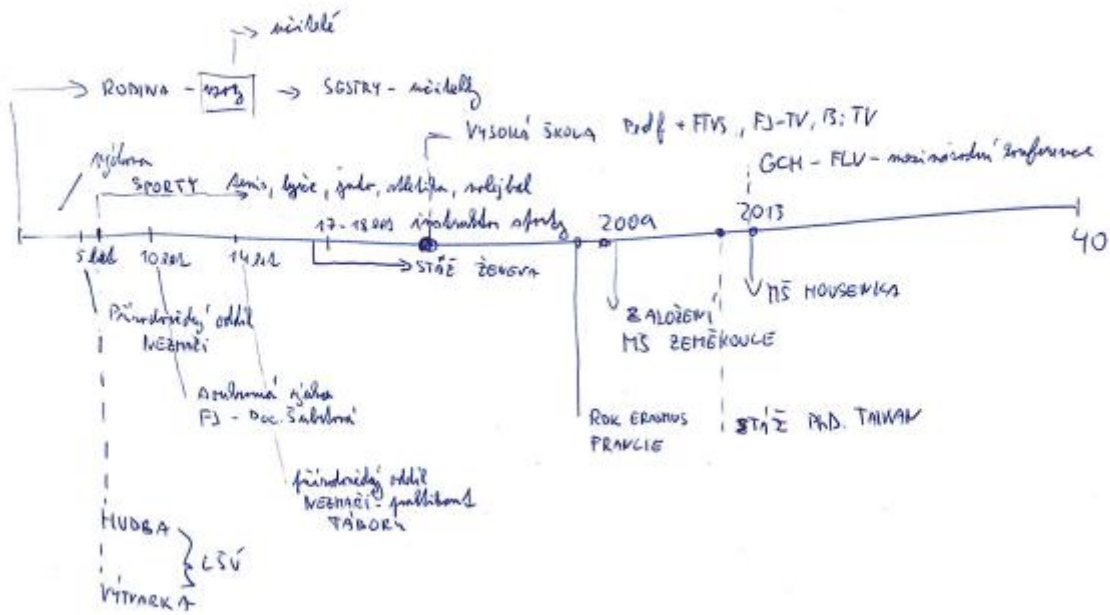 učitelé
RODINA - vzory → SESTRY - učitelky
VYSOKÁ ŠKOLA Pedf + FTVS, FJ-TV, Bi TV
GCH - FLV - mezinárodní konference
výchova
SPORTY tenis, lyže, judo, atletika, volejbal
17-18 let instruktor sporty
2009
2013
40
5 let
10 let
14 let
STÁŽ ŽENEVA
MŠ HOUSENKA
ZALOŽENÍ
MŠ ZEMĚKOULE
Přírodovědný oddíl
NEZMAŘI
soukromá výuka
FJ - Doc.
ROK ERASMUS
FRANCIE
STÁŽ PhD. TAIWAN
přírodovědný oddíl
NEZMAŘI - praktikant
TÁBORY
HUDBA
LŠU
VÝTVARKA